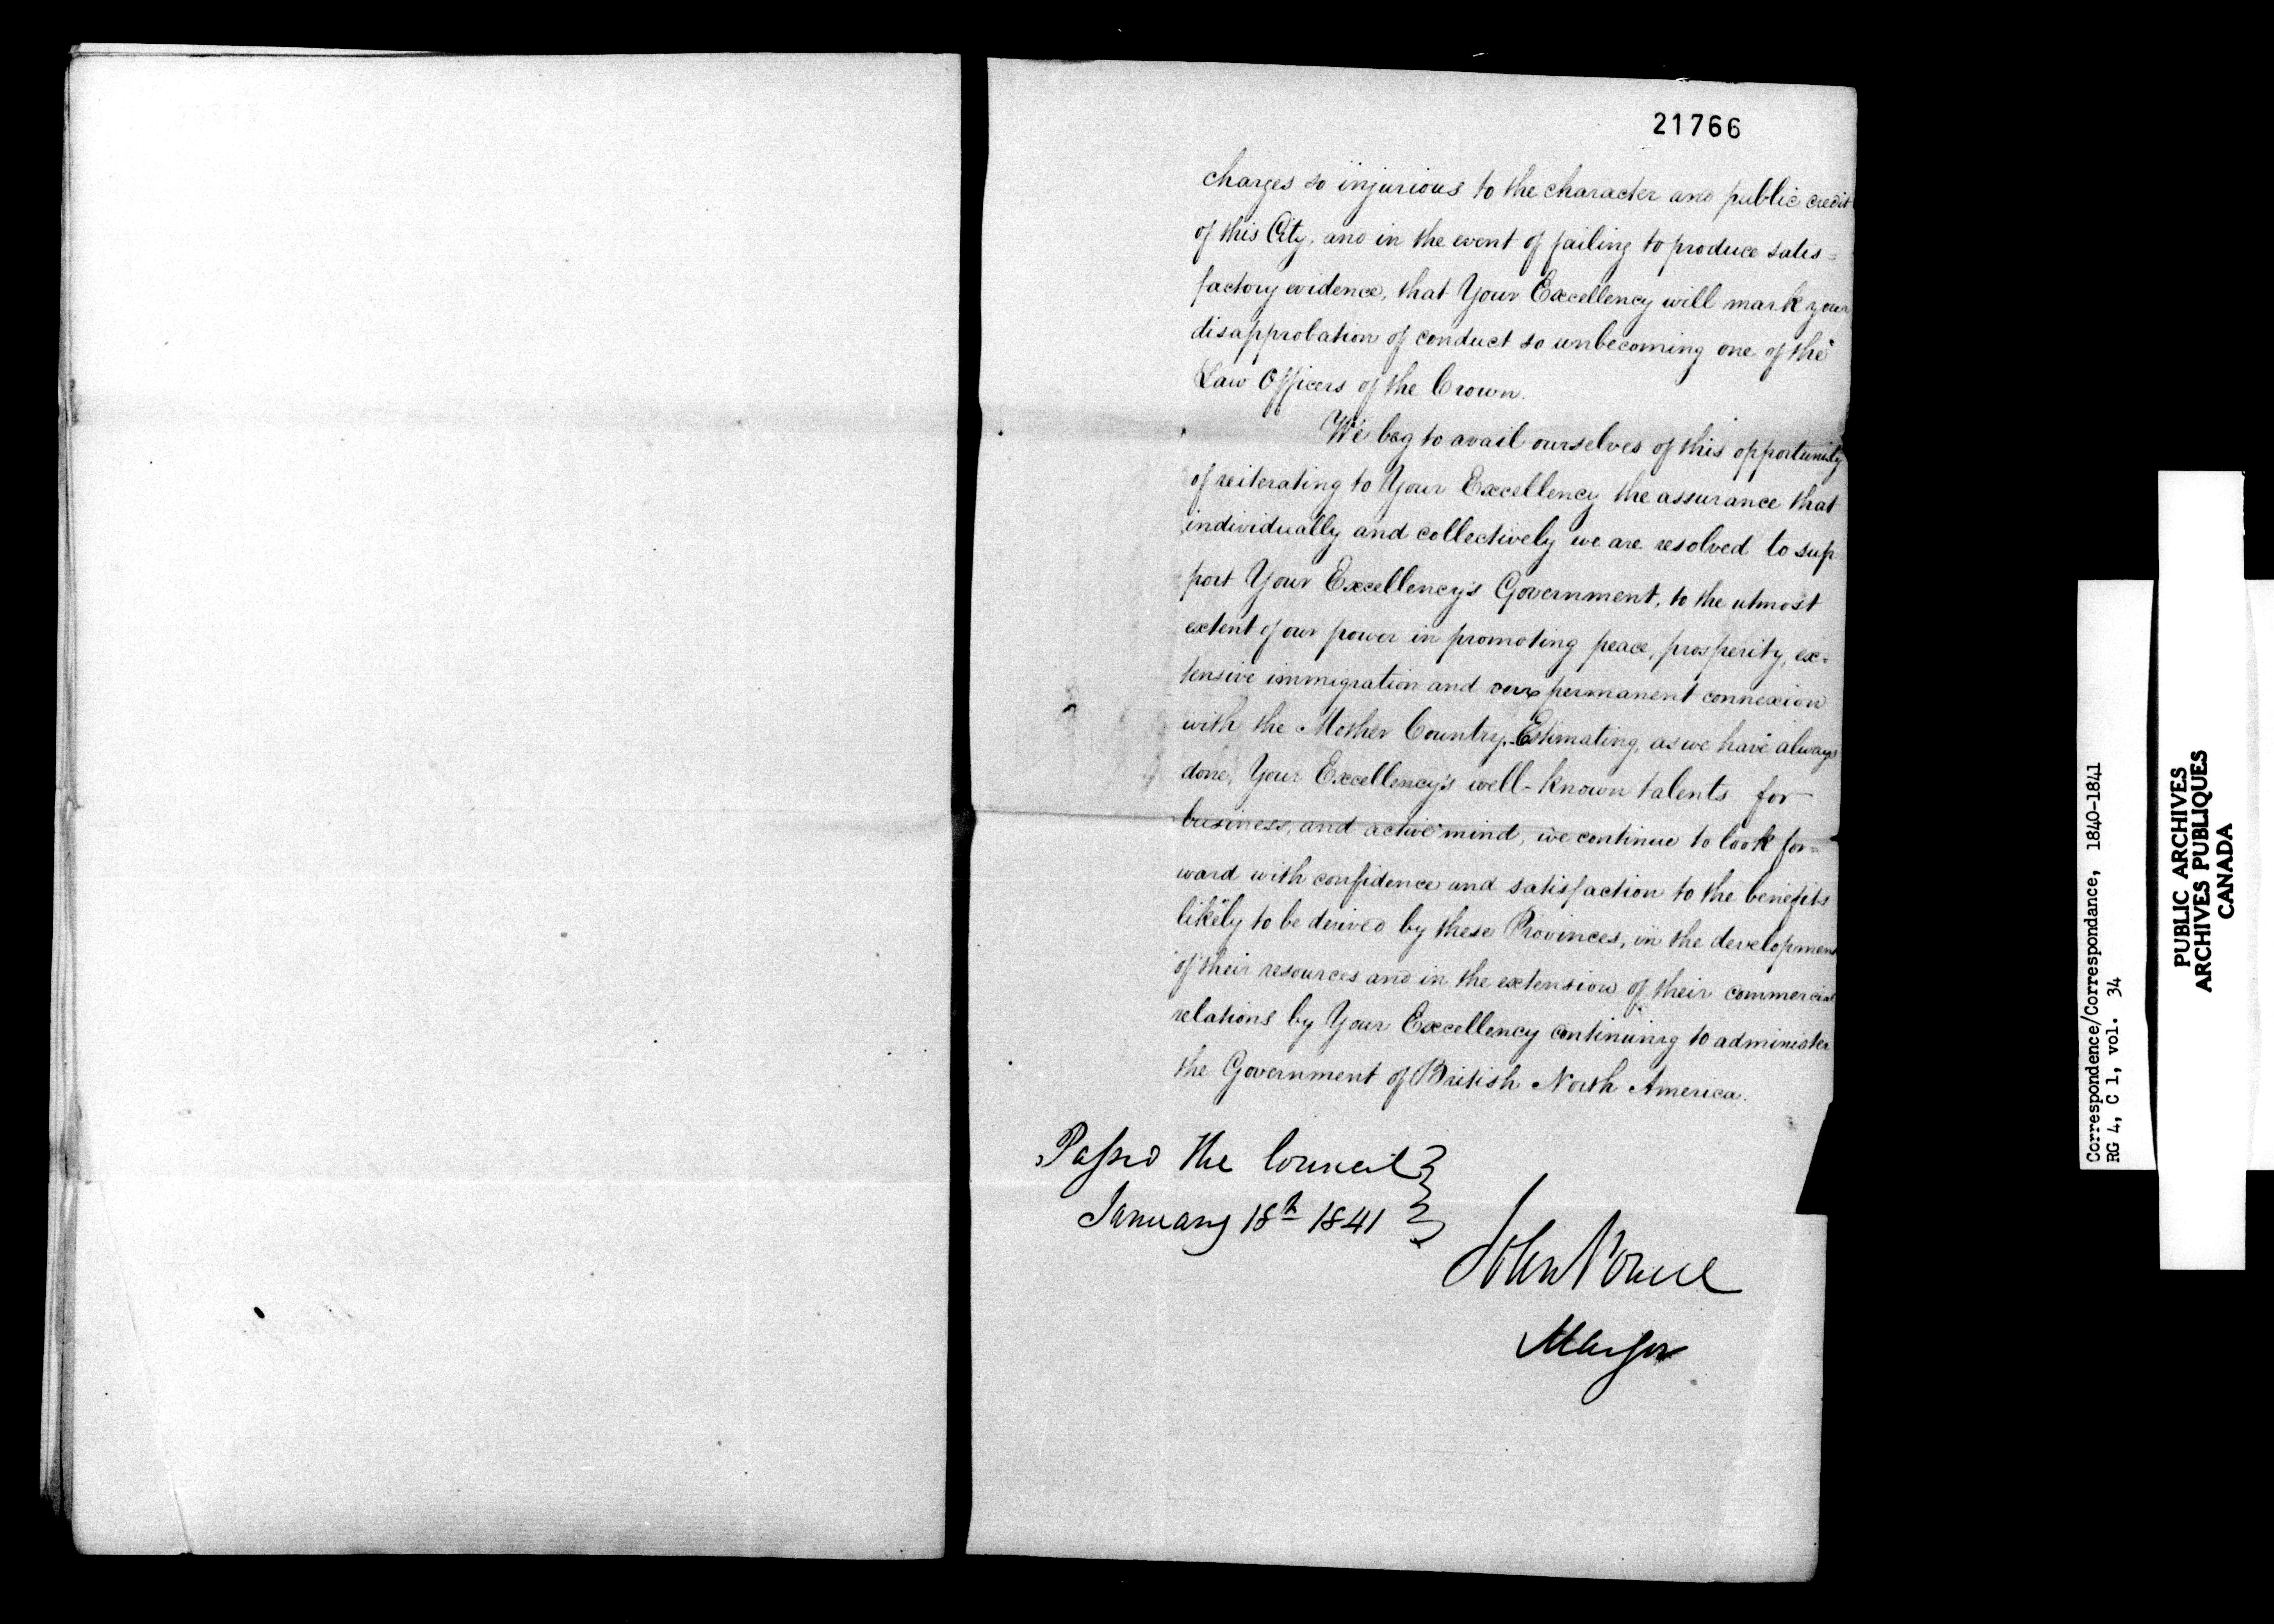 21766
charges so injurious to the character and public credit
of this City, and in the event of failing to produce satis=
factory evidence, that Your Excellency will mark your
disapprobation of conduct so unbecoming one of the
Law Officers of the Crown.
We beg to avail ourselves of this opportunity
of reiterating to Your Excellency the assurance that
individually and collectively we are resolved to sup
port Your Excellency's Government, to the utmost
extent of our power in promoting peace, prosperity, ex=
tensive immigration and our permanent connexion
with the Mother Country. Estimating, as we have always
done, Your Excellency's well-known talents for
business, and active mind, we continue to look for=
ward with confidence and satisfaction to the benefits
likely to be derived by these Provinces, in the developmen
of their resources and in the extension of their commercial
relations by Your Excellency continuing to administer
the Government of British North America.
Passed the Council
January 18th 1841
John Powell
Mayor
Correspondence/Correspondance, 1840-1841
RG 4, C 1, vol. 34
PUBLIC ARCHIVES
ARCHIVES PUBLIQUES
CANADA